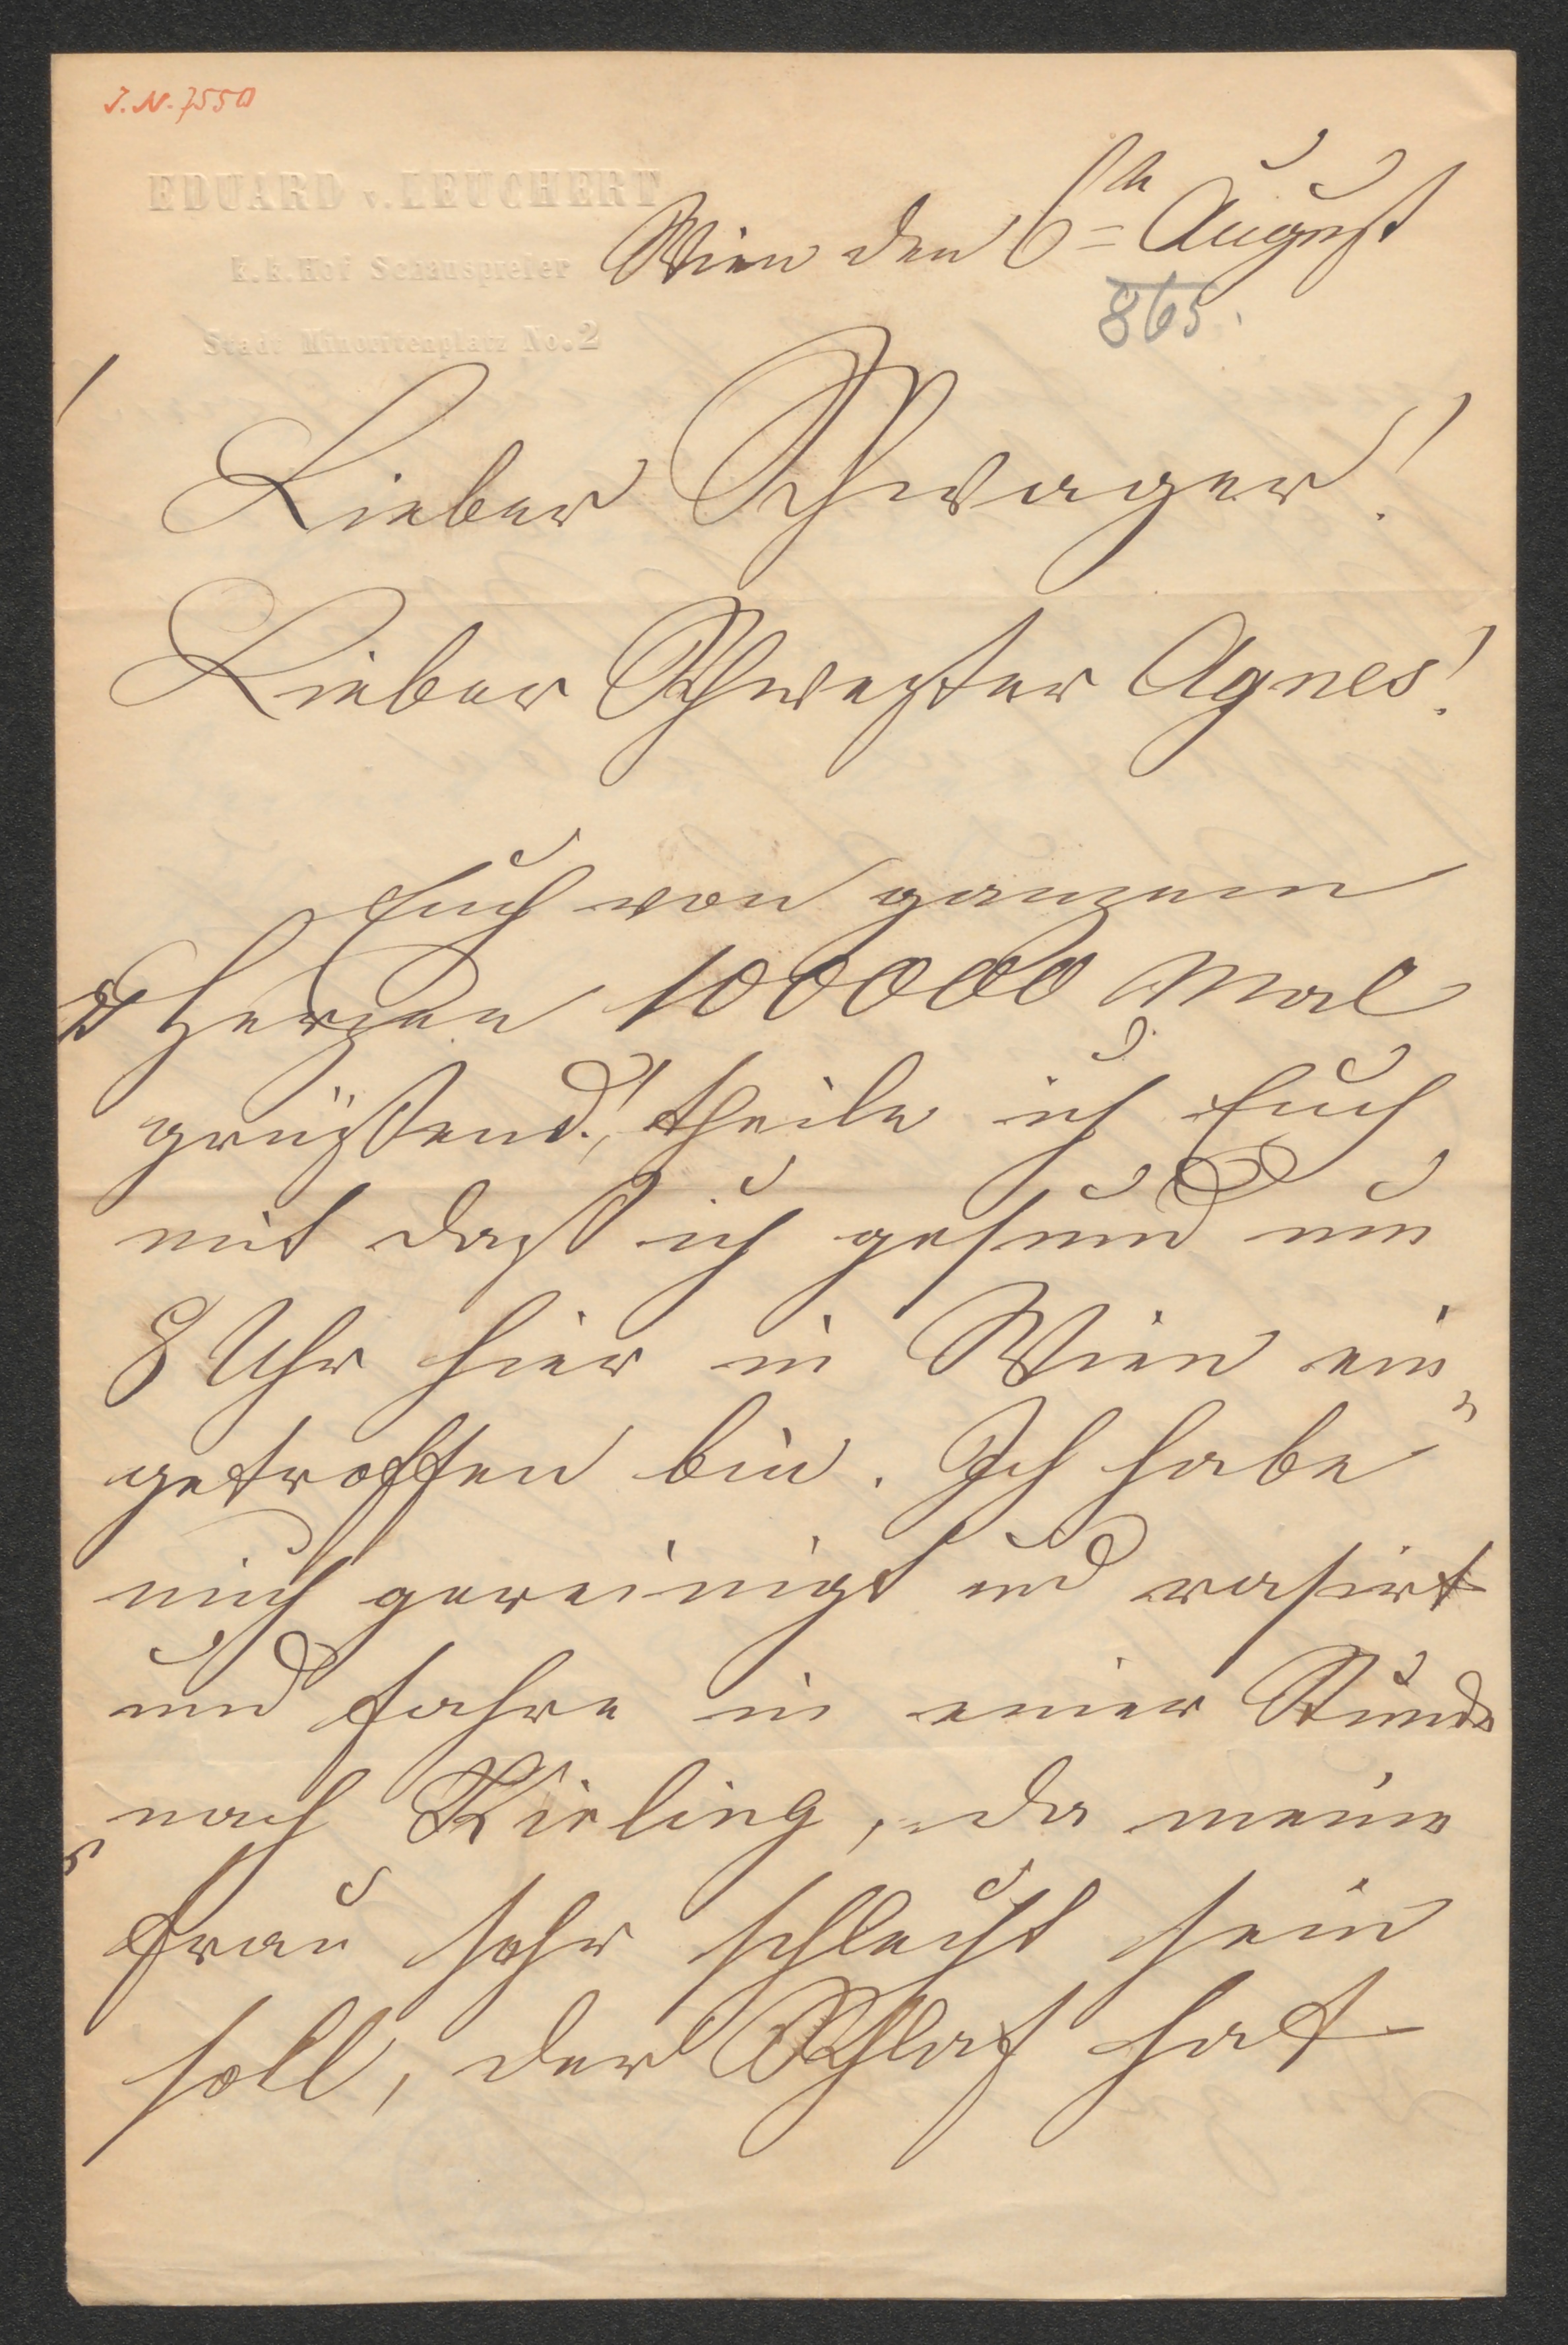 J.N. 7550
EDUARD v. LEUCHERT
k.k. Hof Schauspieler
Stadt Minoritenplatz No. 2
Wien den 6ten August
865.
Lieber Schwager!
Lieber Schwester Agnes!
Euch von ganzem
Herzen 100000 Mal
grüßend!, theile ich Euch
mit daß ich gesund um
8 Uhr hier in Wien ein„
getroffen bin. Ich habe
mich gereinigt und rasirt
und fahre in einer Stunde
nach Kirling, da meine
Frau sehr schlecht sein
soll, der Schlaf hat